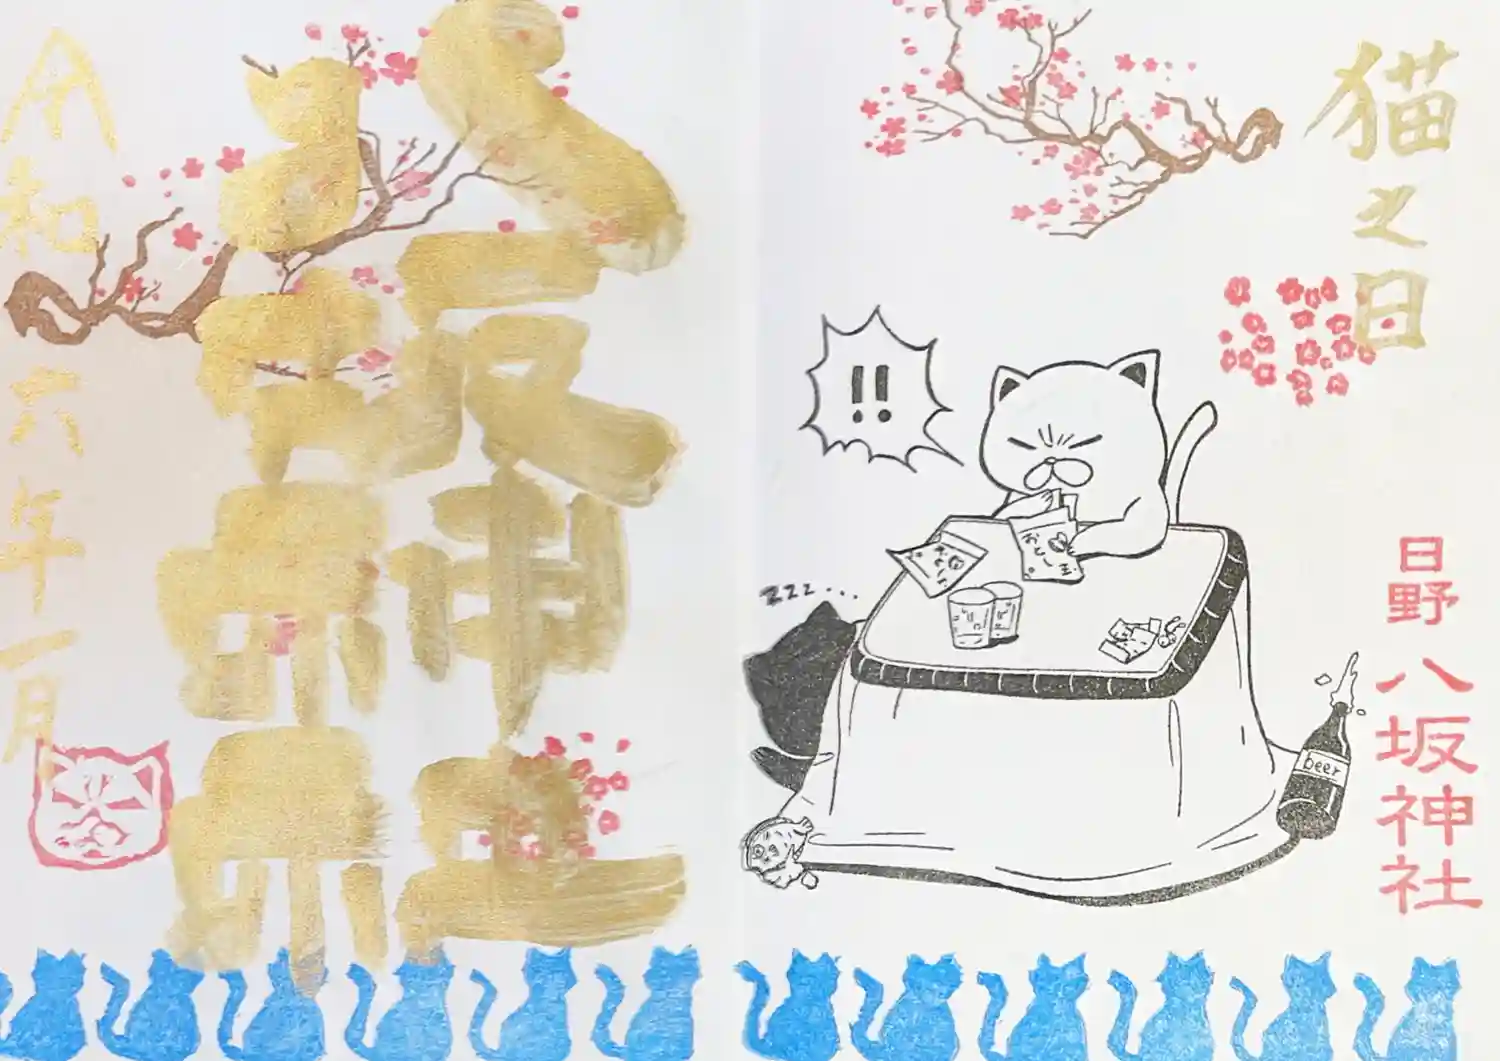 猫之日
日野八坂神社
!!
おとし玉
zzz...
beer
八坂神社
令和六年一月